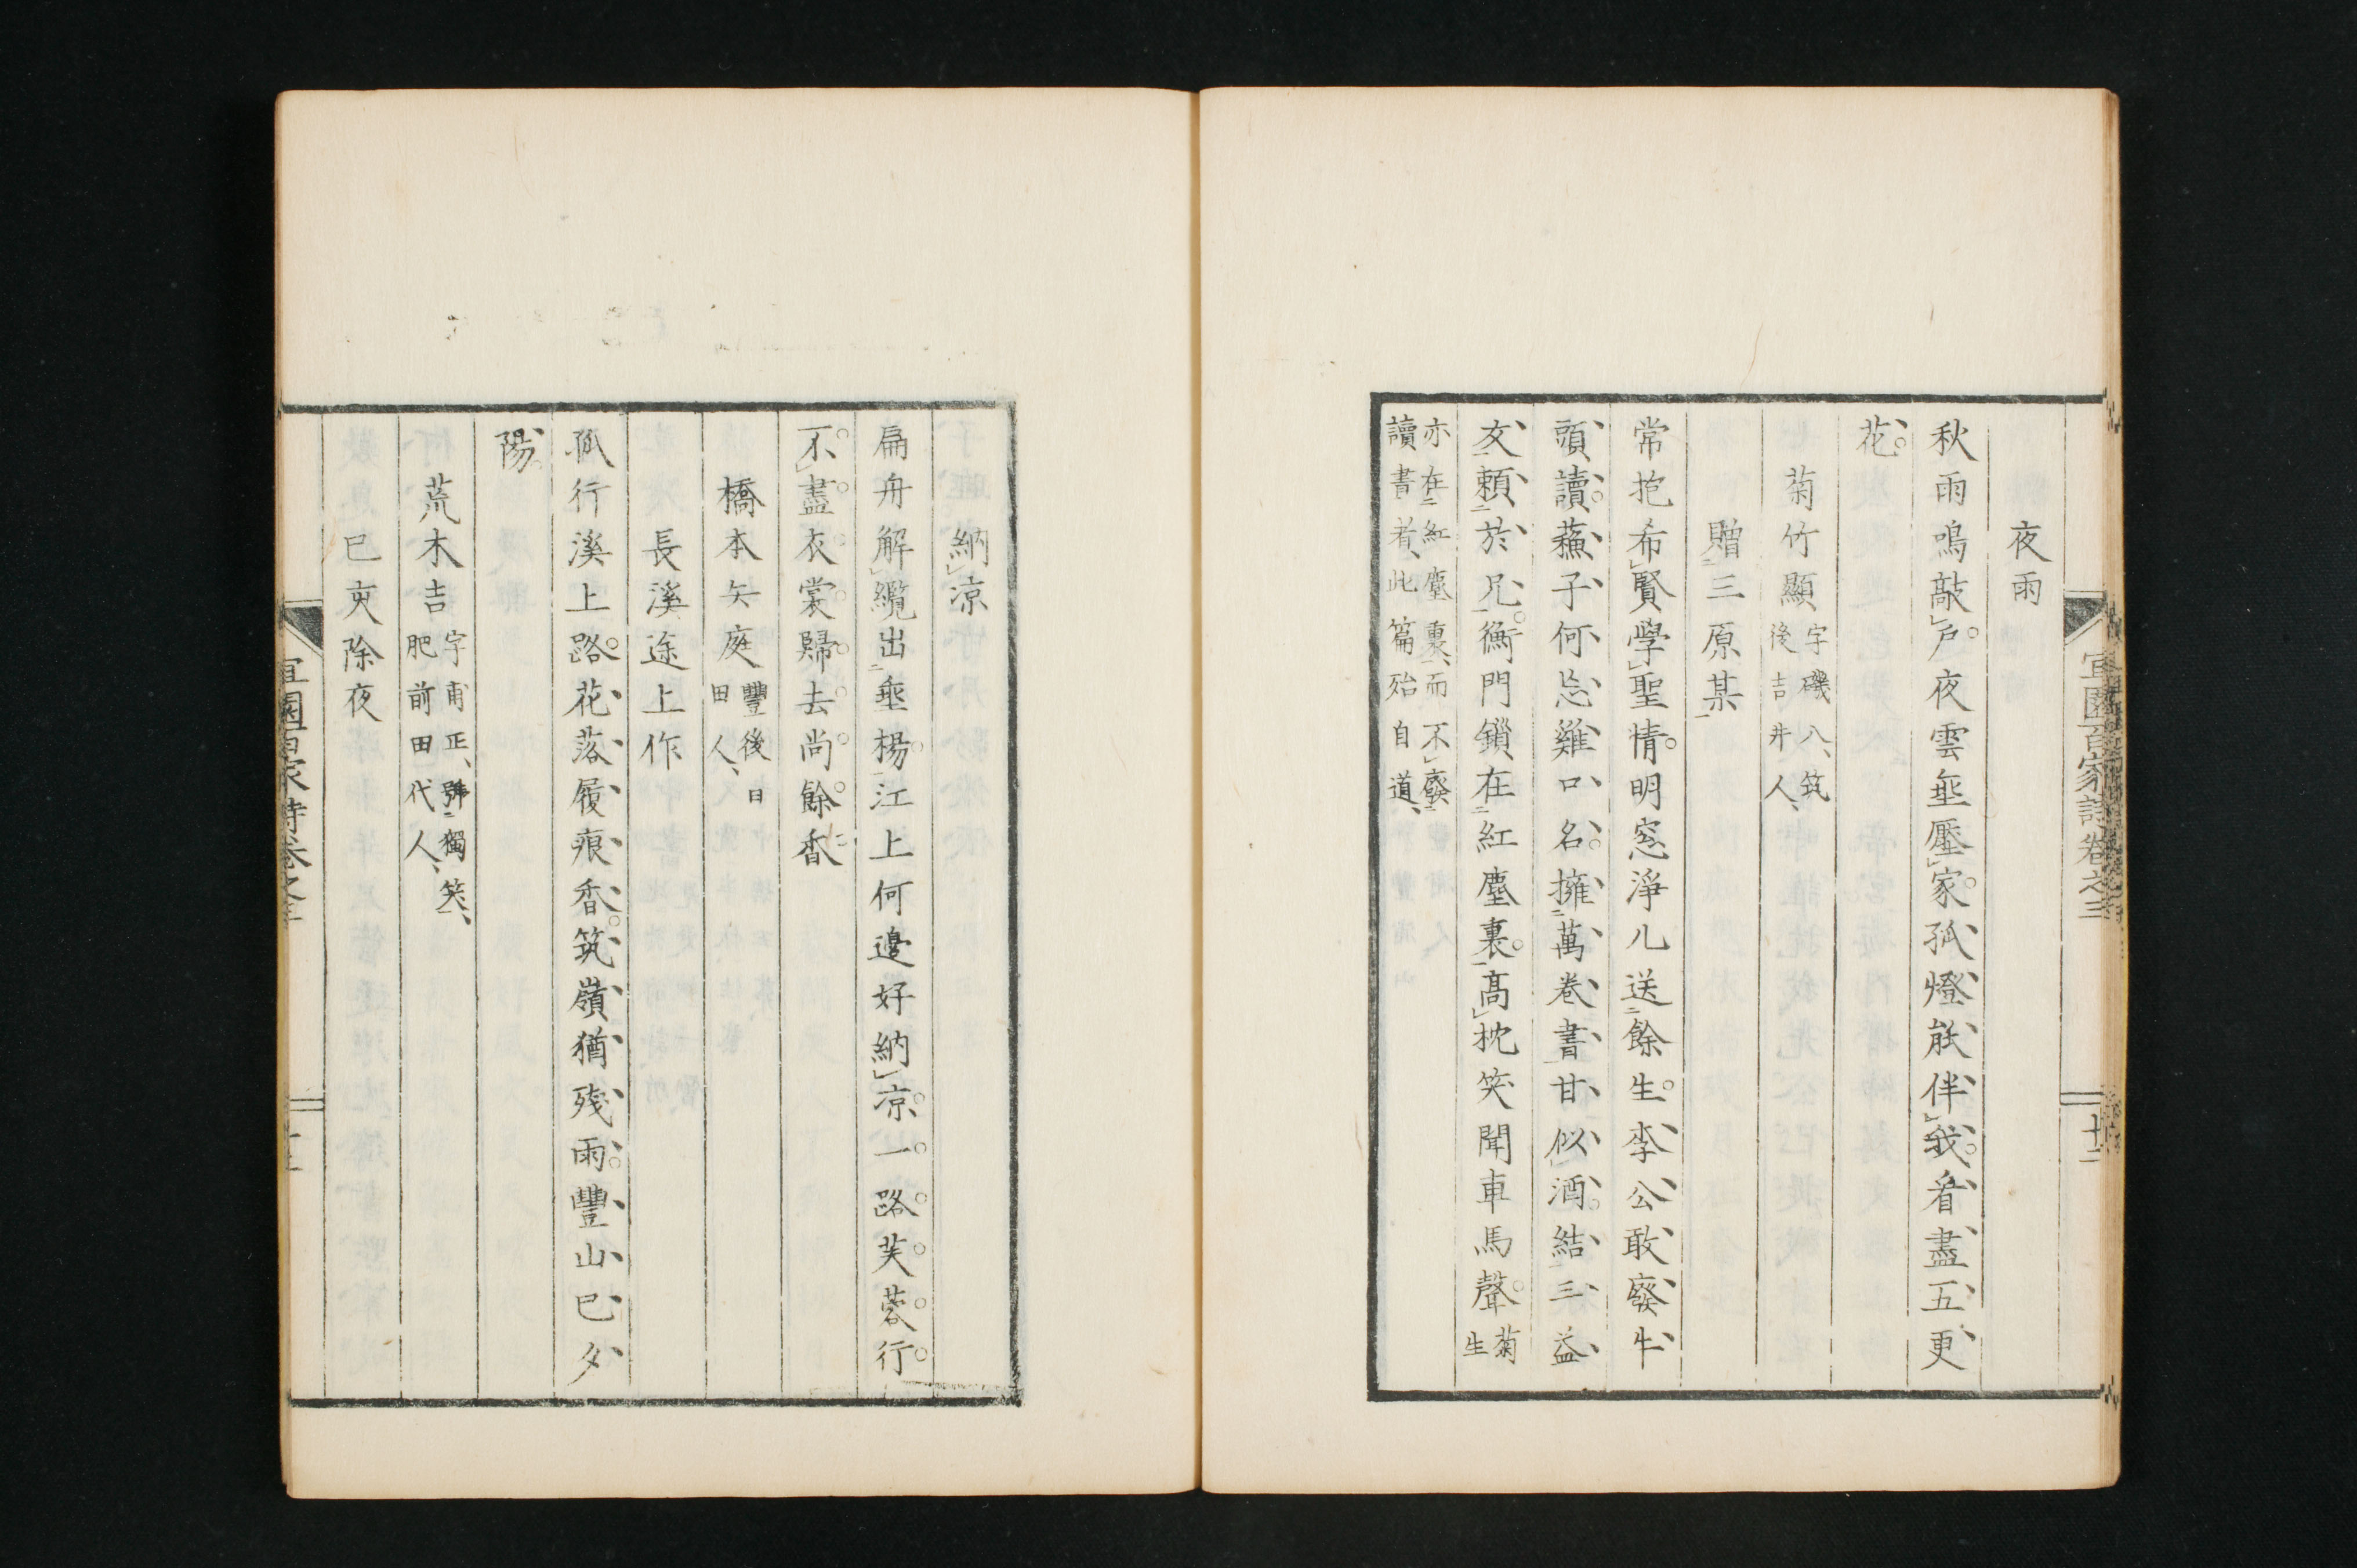 夜雨
秋雨鳴敲戸夜雲垂壓家孤燈能伴我看盡五更
花
菊竹顯 字磯八、筑
後吉井人、
贈三原某
常抱希賢學聖情明窓淨几送餘生李公敢廢牛
頭讀蘓子何忘雞口名擁萬卷書甘似酒結三益
友賴於兄衡門鎖在紅塵裏高枕笑聞車馬聲 菊
生
亦在紅塵裏、而不廢
讀書者、此篇殆自道、
宜園百家詩卷之三
十二
納凉
扁舟解纜出垂楊江上何邊好納凉一路芙蓉行
不盡衣裳歸去尚餘香
橋本矢庭 豐後日
田人、
長溪途上作
孤行溪上路花落履痕香筑嶺猶殘雨豐山已夕
陽
荒木吉 字甫正、號獨笑、
肥前田代人、
已亥除夜
宜園百家詩卷之三